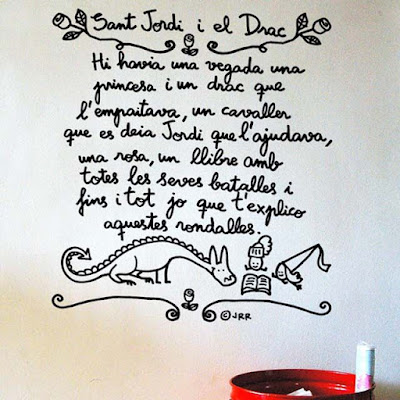 Sant Jordi i el Drac
Hi havia una vegada una
princesa i un drac que
l'empaitava, un cavaller
que es deia Jordi que l'ajudava,
una rosa, un llibre amb
totes les seves batalles i
fins i tot jo que t'explico
aquestes rondalles.
© JRR